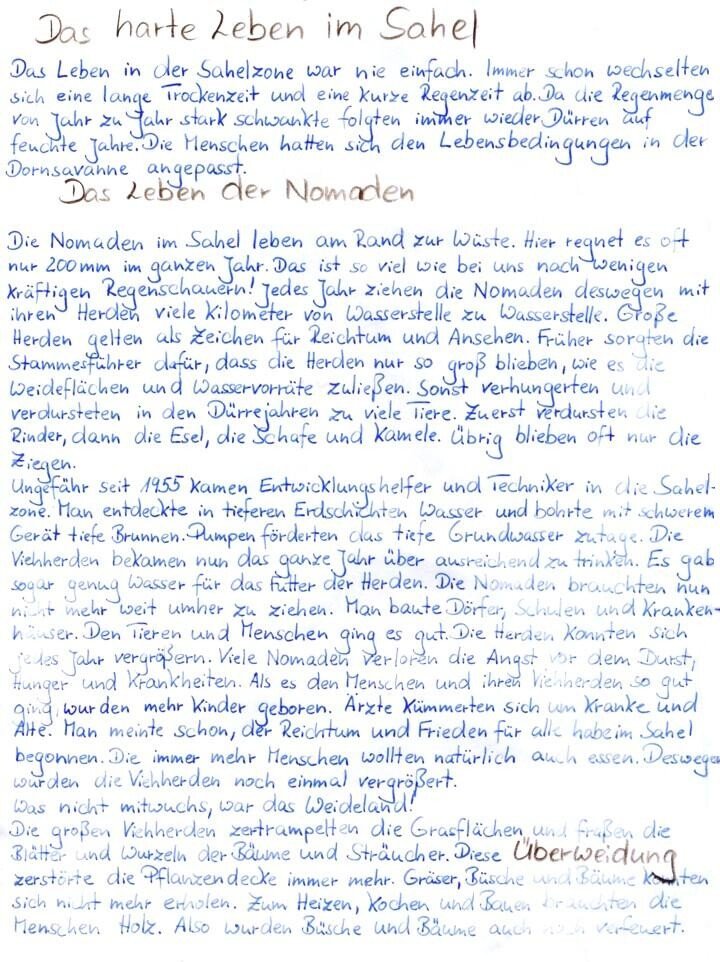 Das harte Leben im Sahel
Das Leben in der Sahelzone war nie einfach. Immer schon wechselten
sich eine lange Trockenzeit und eine kurze Regenzeit ab. Da die Regenmenge
von Jahr zu Jahr stark schwankte folgten immer wieder Dürren auf
feuchte Jahre. Die Menschen hatten sich den Lebensbedingungen in der
Dornsavanne angepasst.
Das Leben der Nomaden
Die Nomaden im Sahel leben am Rand zur Wüste. Hier regnet es oft
nur 200mm im ganzen Jahr. Das ist so viel wie bei uns nach wenigen
kräftigen Regenschauern! Jedes Jahr ziehen die Nomaden deswegen mit
ihren Herden viele Kilometer von Wasserstelle zu Wasserstelle. Große
Herden gelten als Zeichen für Reichtum und Ansehen. Früher sorgten die
Stammesführer dafür, dass die Herden nur so groß blieben, wie es die
Weideflächen und Wasservorräte zuließen. Sonst verhungerten und
verdursteten in den Dürrejahren zu viele Tiere. Zuerst verdursten die
Rinder, dann die Esel, die Schafe und Kamele. Übrig blieben oft nur die
Ziegen.
Ungefähr seit 1955 kamen Entwicklungshelfer und Techniker in die Sahel-
zone. Man entdeckte in tieferen Erdschichten Wasser und bohrte mit schwerem
Gerät tiefe Brunnen. Pumpen förderten das tiefe Grundwasser zutage. Die
Viehherden bekamen nun das ganze Jahr über ausreichend zu trinken. Es gab
sogar genug Wasser für das Futter der Herden. Die Nomaden brauchten nun
nicht mehr weit umher zu ziehen. Man baute Dörfer, Schulen und Kranken-
häuser. Den Tieren und Menschen ging es gut. Die Herden konnten sich
jedes Jahr vergrößern. Viele Nomaden verloren die Angst vor dem Durst,
Hunger und Krankheiten. Als es den Menschen und ihren Viehherden so gut
ging, wurden mehr Kinder geboren. Ärzte kümmerten sich um Kranke und
Alte. Man meinte schon, der Reichtum und Frieden für alle habe im Sahel
begonnen. Die immer mehr Menschen wollten natürlich auch essen. Deswegen
wurden die Viehherden noch einmal vergrößert.
Was nicht mitwuchs, war das Weideland!
Die großen Viehherden zertrampelten die Grasflächen und fraßen die
Blätter und Wurzeln der Bäume und Sträucher. Diese Überweidung
zerstörte die Pflanzendecke immer mehr. Gräser, Büsche und Bäume konnten
sich nicht mehr erholen. Zum Heizen, Kochen und Bauen brauchten die
Menschen Holz. Also wurden Büsche und Bäume auch noch verfeuert.